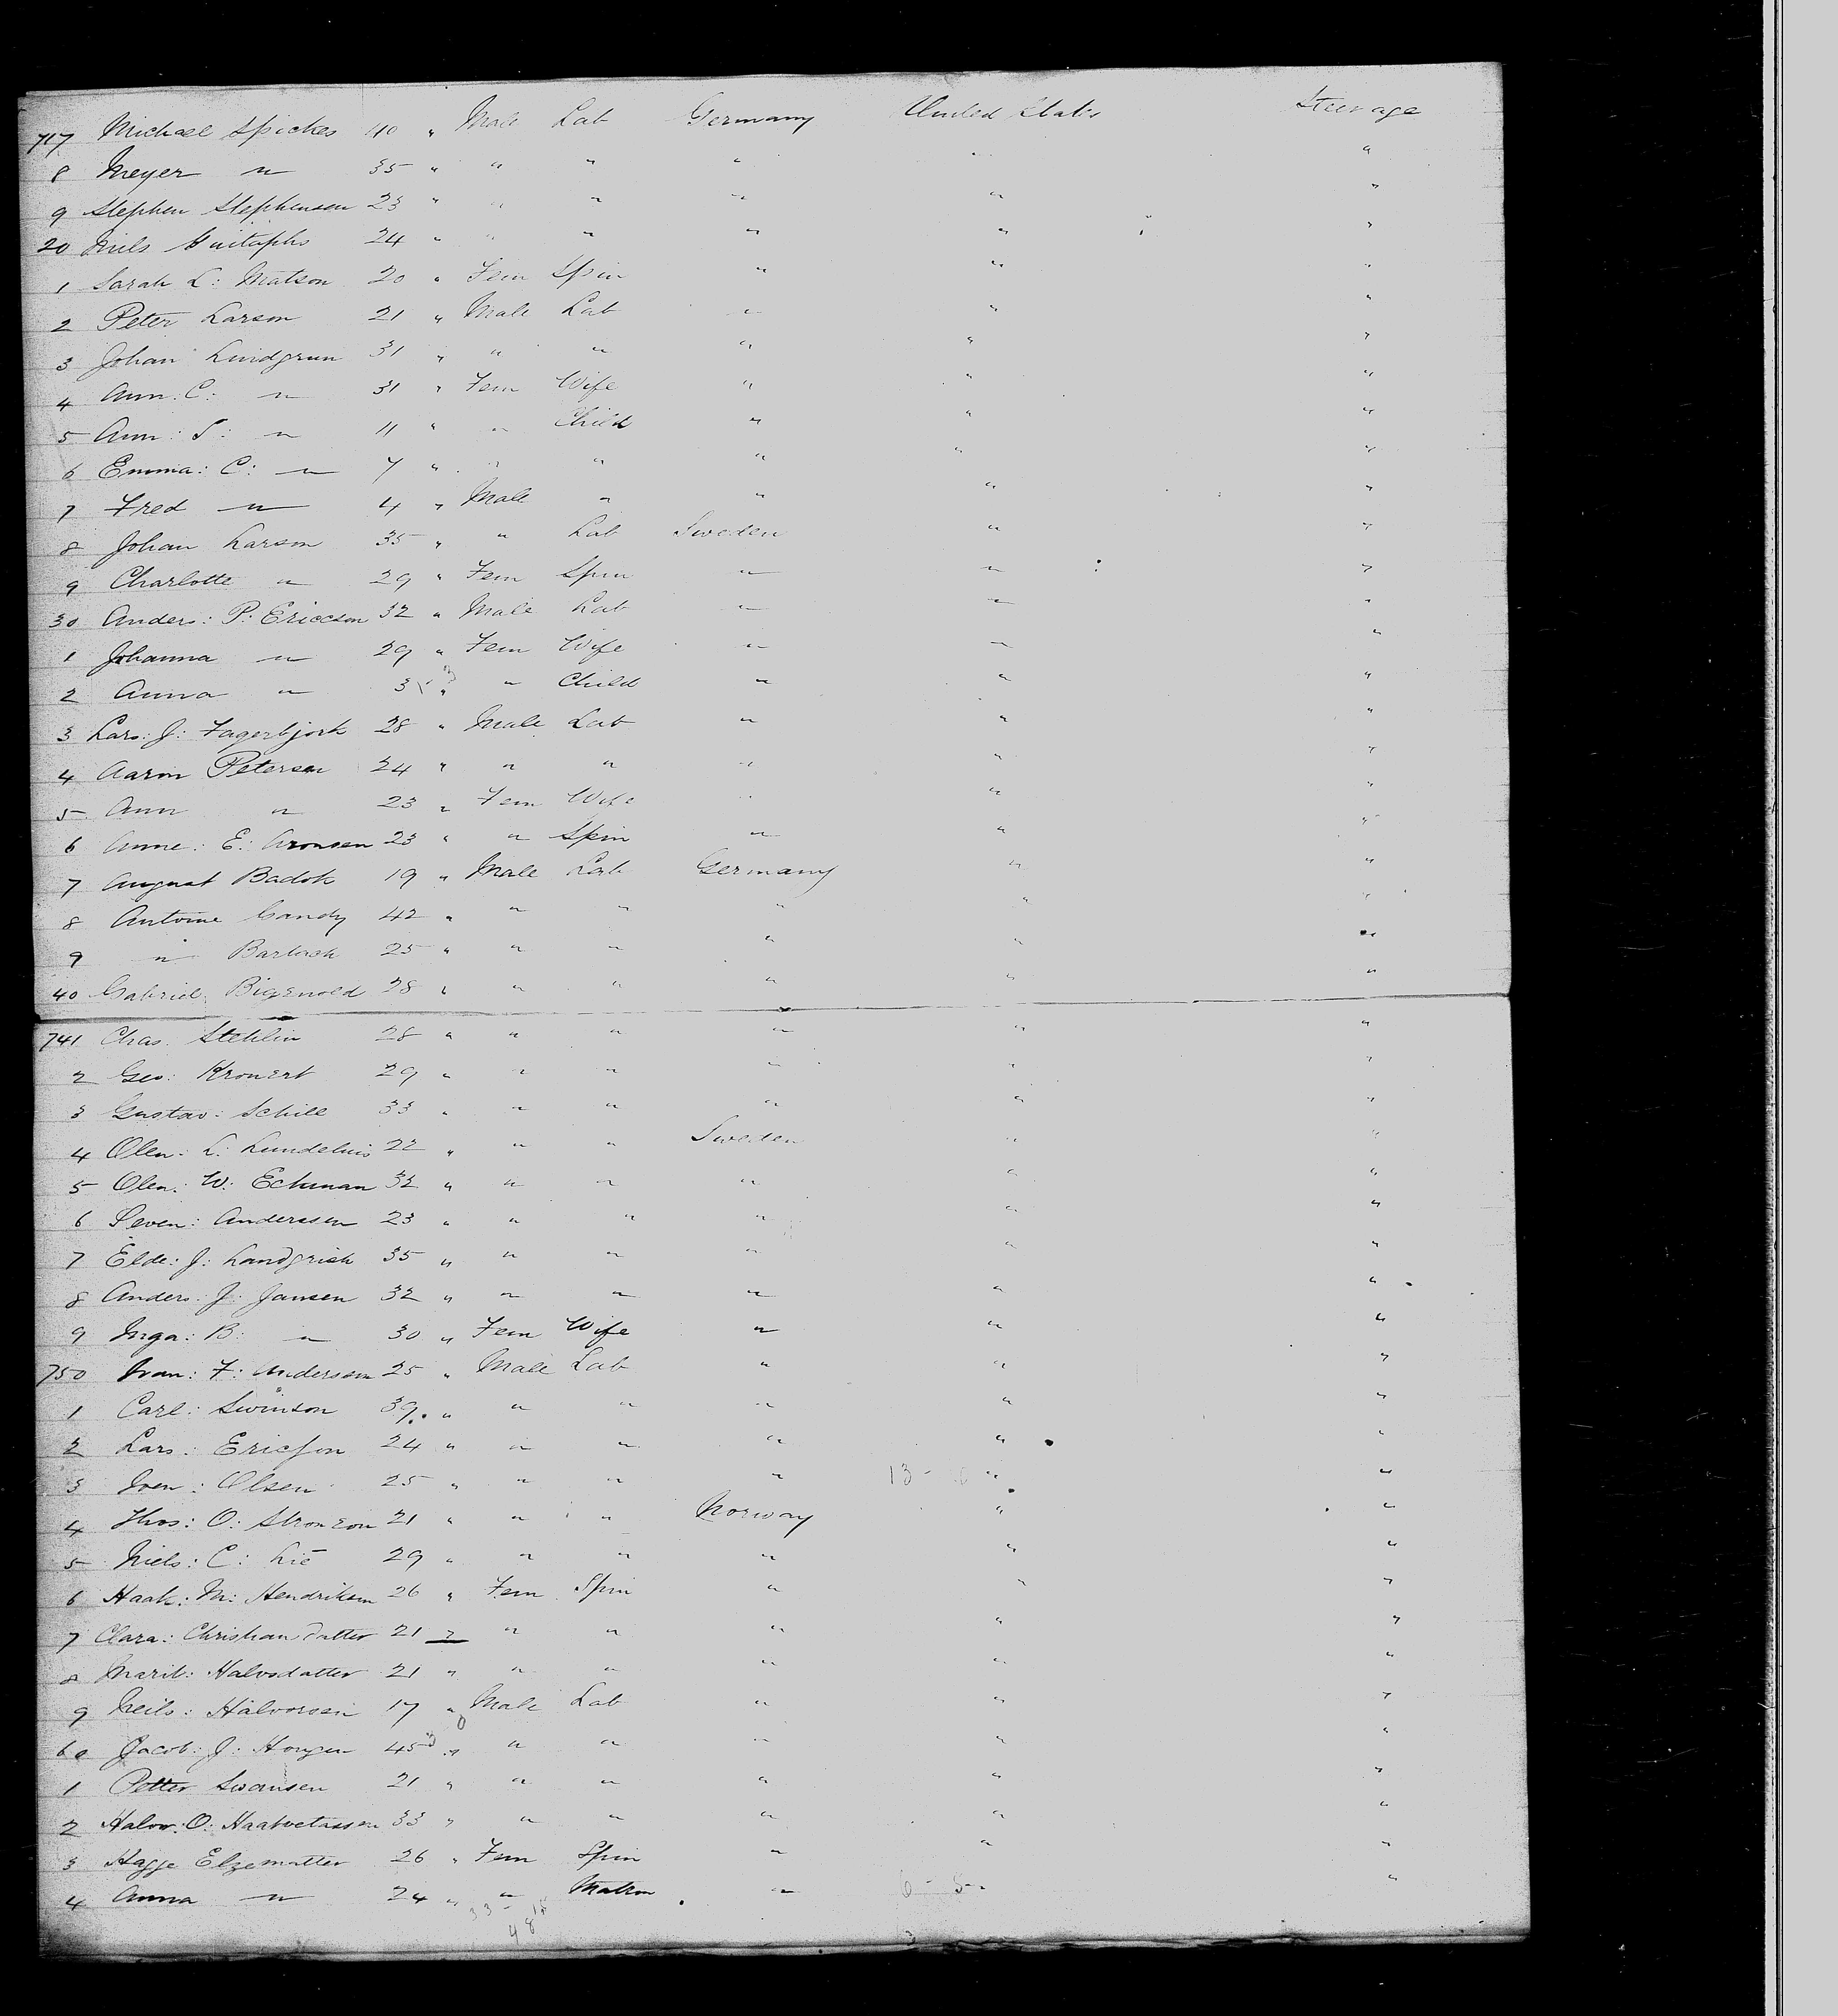 717 Michael Spickes 40 " Male Lab Germany United States Steerage
8 Meyer " 35 " " " " " "
9 Stephen Stephenson 23 " " " " " "
20 Niels 24 " " " " " "
1 Sarah L: Matson 20 " Fem Spin " " "
2 Peter Larson 21 " Male Lab " " "
3 Johan Lindgrun 31 " " " " " "
4 Ann. C: " 31 " Fem Wife " " "
5 Ann: S: " 11 " " Child " " "
6 Emma: C: " 7 " " " " " "
7 Fred " 4 " Male " " " "
8 Johan Larson 35 " " Lab Sweden " "
9 Charlotte " 29 " Fem Spin " " "
30 Anders: P: Ericcson 32 " Male Lab " " "
1 Johanna " 29 " Fem Wife " " "
2 Anna " 3 " " Child " " "
3 Lars: J: Fagerbjork 28 " Male Lab " " "
4 Aaron Petersen 24 " " " " " "
5 Ann " 23 " Fem Wife " " "
6 Anne: E: Aronsen 23 " " Spin " " "
7 August Badok 19 " Male Lab Germany " "
8 Antoine Candy 42 " " " " " "
9 " Barbach 25 " " " " " "
40 Gabriel Bigenold 28 " " " " " "
741 Chas. Stehlin 28 " " " " " "
2 Geo: Kronert 29 " " " " " "
3 Gustav: Schill 33 " " " " " "
4 Olen: L: Lundelius 22 " " " Sweden " "
5 Olen: W: Echman 32 " " " " " "
6 Seven: Anderssen 23 " " " " " "
7 Elde: J: Landgrish 35 " " " " " "
8 Anders: J: Jansen 32 " " " " " "
9 Inga: B: " 30 " Fem Wife " " "
750 Ivan: F: Anderson 25 " Male Lab " " "
1 Carl: Swinson 39 " " " " " "
2 Lars: Ericson 24 " " " " " "
3 Iven: Olsen 25 " " " " 13- "
4 Thos: O: Stronzon 21 " " " Norway " "
5 Niels: C: Lie 29 " " " " " "
6 Haak: M: Hendriksen 26 " Fem Spin " " "
7 Clara: Christian datter 21 " " " " " "
8 Marit: Halvsdatter 21 " " " " " "
9 Neils: Halvorsen 17 " Male Lab " " "
60 Jacob: J: Hougen 45 " " " " " "
1 Petter Swansen 21 " " " " " "
2 Halvor: O: Haatvetassen 33 " " " " " "
3 Hagge Elzematter 26 " Fem Spin " " "
4 Anna " 24 " " Matron " 6 - 5 "
33-
48